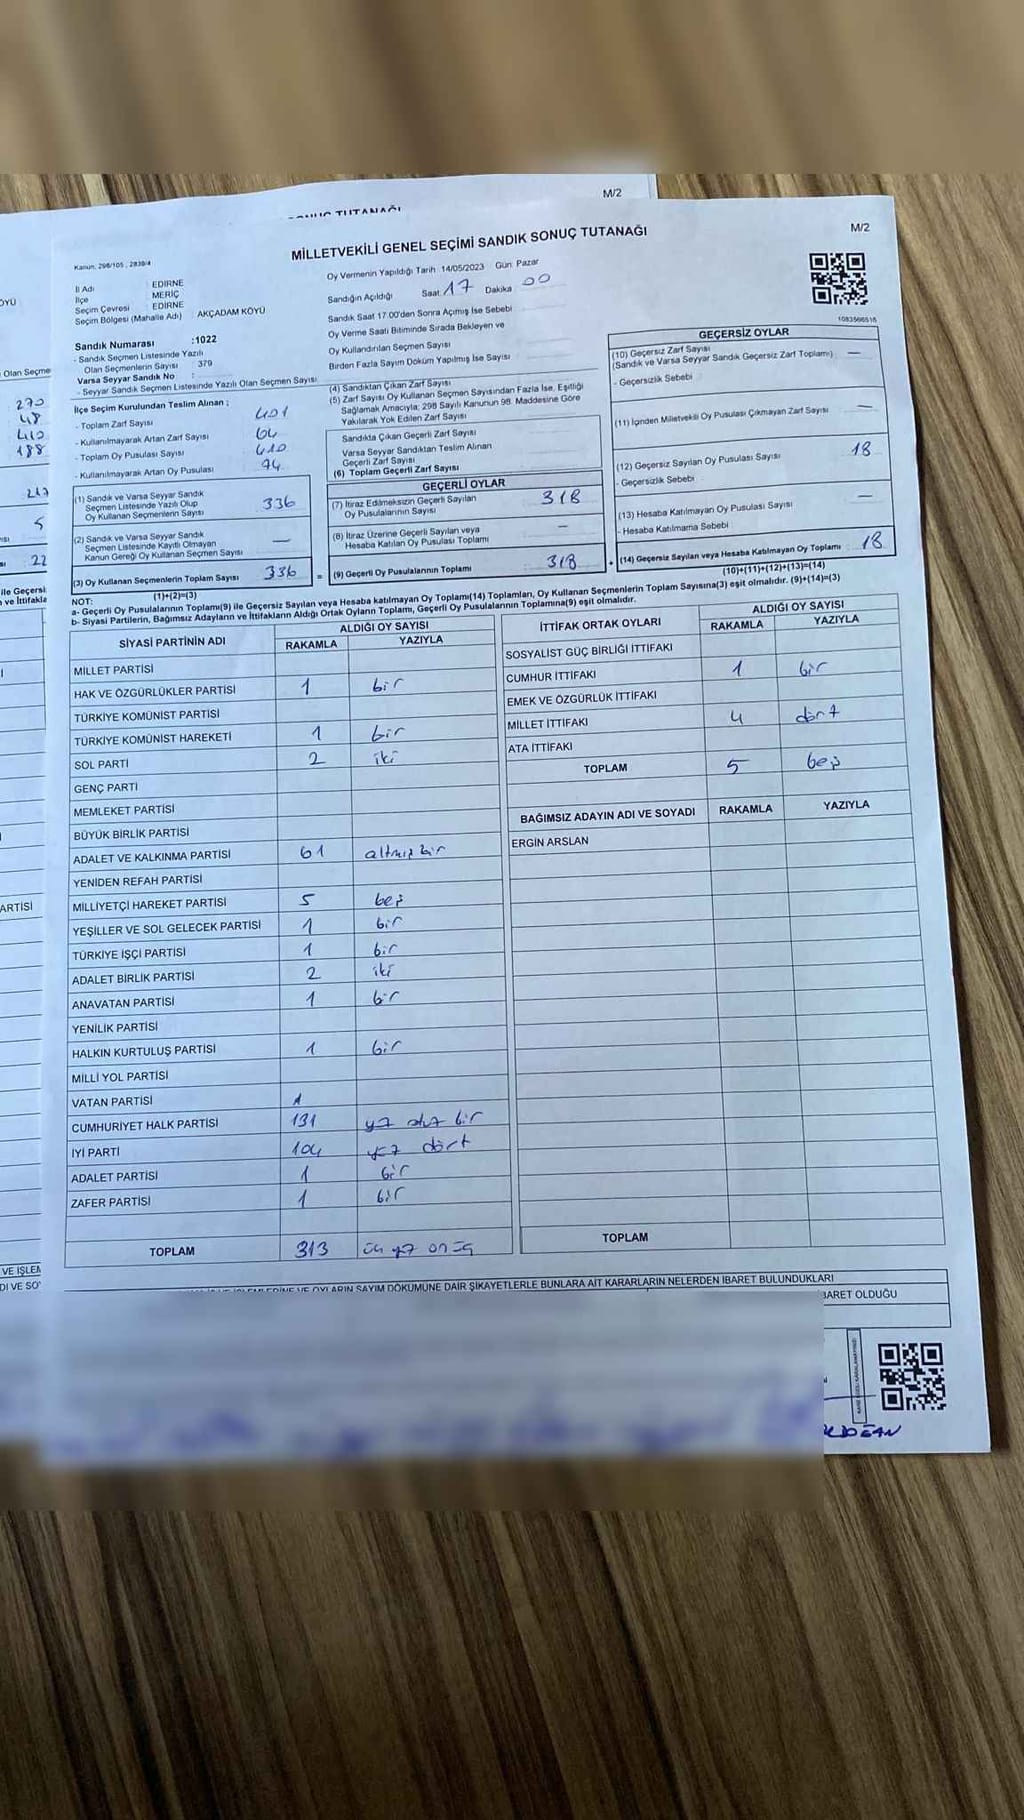 M/2
SONUÇ TUTANAĞI
M/2
MİLLETVEKİLİ GENEL SEÇİMİ SANDIK SONUÇ TUTANAĞI
Kanun: 298/105 , 2839/4
İl Adı EDİRNE
İlçe MERİÇ
Seçim Çevresi EDİRNE
Seçim Bölgesi (Mahalle Adı) : AKÇADAM KÖYÜ
Oy Vermenin Yapıldığı Tarih :14/05/2023 Gün: Pazar
Sandığın Açıldığı Saat 17 Dakika 00
Sandık Saat 17:00'den Sonra Açılmış İse Sebebi
Oy Verme Saati Bitiminde Sırada Bekleyen ve
Oy Kullandırılan Seçmen Sayısı
Birden Fazla Sayım Döküm Yapılmış İse Sayısı
1083566516
Sandık Numarası :1022
- Sandık Seçmen Listesinde Yazılı
Olan Seçmenlerin Sayısı : 379
Varsa Seyyar Sandık No :
- Seyyar Sandık Seçmen Listesinde Yazılı Olan Seçmen Sayısı
İlçe Seçim Kurulundan Teslim Alınan ;
- Toplam Zarf Sayısı 401
- Kullanılmayarak Artan Zarf Sayısı 64
- Toplam Oy Pusulası Sayısı 410
- Kullanılmayarak Artan Oy Pusulası 74
(1) Sandık ve Varsa Seyyar Sandık
Seçmen Listesinde Yazılı Olup
Oy Kullanan Seçmenlerin Sayısı 336
(2) Sandık ve Varsa Seyyar Sandık
Seçmen Listesinde Kayıtlı Olmayan
Kanun Gereği Oy Kullanan Seçmen Sayısı —
(3) Oy Kullanan Seçmenlerin Toplam Sayısı 336
(1)+(2)=(3)
(4) Sandıktan Çıkan Zarf Sayısı
(5) Zarf Sayısı Oy Kullanan Seçmen Sayısından Fazla İse, Eşitliği
Sağlamak Amacıyla; 298 Sayılı Kanunun 98. Maddesine Göre
Yakılarak Yok Edilen Zarf Sayısı
Sandıkta Çıkan Geçerli Zarf Sayısı
Varsa Seyyar Sandıktan Teslim Alınan
Geçerli Zarf Sayısı
(6) Toplam Geçerli Zarf Sayısı
GEÇERLİ OYLAR
(7) İtiraz Edilmeksizin Geçerli Sayılan
Oy Pusulalarının Sayısı 318
(8) İtiraz Üzerine Geçerli Sayılan veya
Hesaba Katılan Oy Pusulası Toplamı —
= (9) Geçerli Oy Pusulalarının Toplamı 318
GEÇERSİZ OYLAR
(10) Geçersiz Zarf Sayısı —
(Sandık ve Varsa Seyyar Sandık Geçersiz Zarf Toplamı)
- Geçersizlik Sebebi
(11) İçinden Milletvekili Oy Pusulası Çıkmayan Zarf Sayısı —
(12) Geçersiz Sayılan Oy Pusulası Sayısı 18
- Geçersizlik Sebebi
(13) Hesaba Katılmayan Oy Pusulası Sayısı —
- Hesaba Katılmama Sebebi
+ (14) Geçersiz Sayılan veya Hesaba Katılmayan Oy Toplamı 18
(10)+(11)+(12)+(13)=(14)
NOT:
a- Geçerli Oy Pusulalarının Toplamı(9) ile Geçersiz Sayılan veya Hesaba katılmayan Oy Toplamı(14) Toplamları, Oy Kullanan Seçmenlerin Toplam Sayısına(3) eşit olmalıdır. (9)+(14)=(3)
b- Siyasi Partilerin, Bağımsız Adayların ve İttifakların Aldığı Ortak Oyların Toplamı, Geçerli Oy Pusulalarının Toplamına(9) eşit olmalıdır.
SİYASİ PARTİNİN ADI ALDIĞI OY SAYISI
RAKAMLA YAZIYLA
MİLLET PARTİSİ
HAK VE ÖZGÜRLÜKLER PARTİSİ 1 bir
TÜRKİYE KOMÜNİST PARTİSİ
TÜRKİYE KOMÜNİST HAREKETİ 1 bir
SOL PARTİ 2 iki
GENÇ PARTİ
MEMLEKET PARTİSİ
BÜYÜK BİRLİK PARTİSİ
ADALET VE KALKINMA PARTİSİ 61 altmış bir
YENİDEN REFAH PARTİSİ
MİLLİYETÇİ HAREKET PARTİSİ 5 beş
YEŞİLLER VE SOL GELECEK PARTİSİ 1 bir
TÜRKİYE İŞÇİ PARTİSİ 1 bir
ADALET BİRLİK PARTİSİ 2 iki
ANAVATAN PARTİSİ 1 bir
YENİLİK PARTİSİ
HALKIN KURTULUŞ PARTİSİ 1 bir
MİLLİ YOL PARTİSİ
VATAN PARTİSİ 1
CUMHURİYET HALK PARTİSİ 131 yüz otuz bir
İYİ PARTİ 104 yüz dört
ADALET PARTİSİ 1 bir
ZAFER PARTİSİ 1 bir
TOPLAM 313 üç yüz on üç
İTTİFAK ORTAK OYLARI ALDIĞI OY SAYISI
RAKAMLA YAZIYLA
SOSYALİST GÜÇ BİRLİĞİ İTTİFAKI
CUMHUR İTTİFAKI 1 bir
EMEK VE ÖZGÜRLÜK İTTİFAKI
MİLLET İTTİFAKI 4 dört
ATA İTTİFAKI
TOPLAM 5 beş
BAĞIMSIZ ADAYIN ADI VE SOYADI RAKAMLA YAZIYLA
ERGİN ARSLAN
TOPLAM
OYLARIN SAYIM DÖKÜMÜNE DAİR ŞİKAYETLERLE BUNLARA AİT KARARLARIN NELERDEN İBARET BULUNDUKLARI
BARET OLDUĞU
Olan Seçme
270
48
410
188
217
5
22
ile Geçersi
ve İttifakla
ARTİSİ
VE İŞLEM
DI VE SO